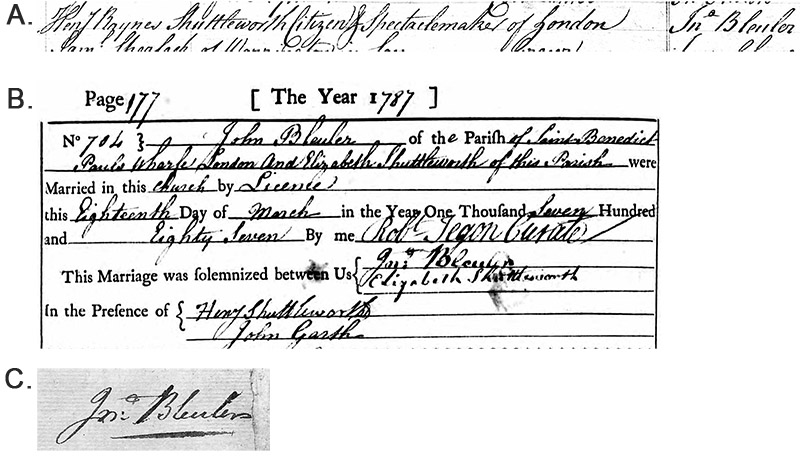 A.
Henʸ Raynes Shuttleworth Citizen & Spectaclemaker of London Jnᵒ Bleuler
B.
Page 177 [ The Year 1787 ]
Nº 704 } John Bleuler of the Parish of Saint Benedict
Pauls Wharfe London And Elizabeth Shuttleworth of this Parish were
Married in this Church by Licence
this Eighteenth Day of March in the Year One Thouſand Seven Hundred
and Eighty Seven By me Robᵗ Curate
This Marriage was ſolemnized between Us { Jnᵒ Bleuler
Elizabeth Shuttleworth
In the Preſence of { Henʸ Shuttleworth
John Garth
C.
Jnᵒ Bleuler